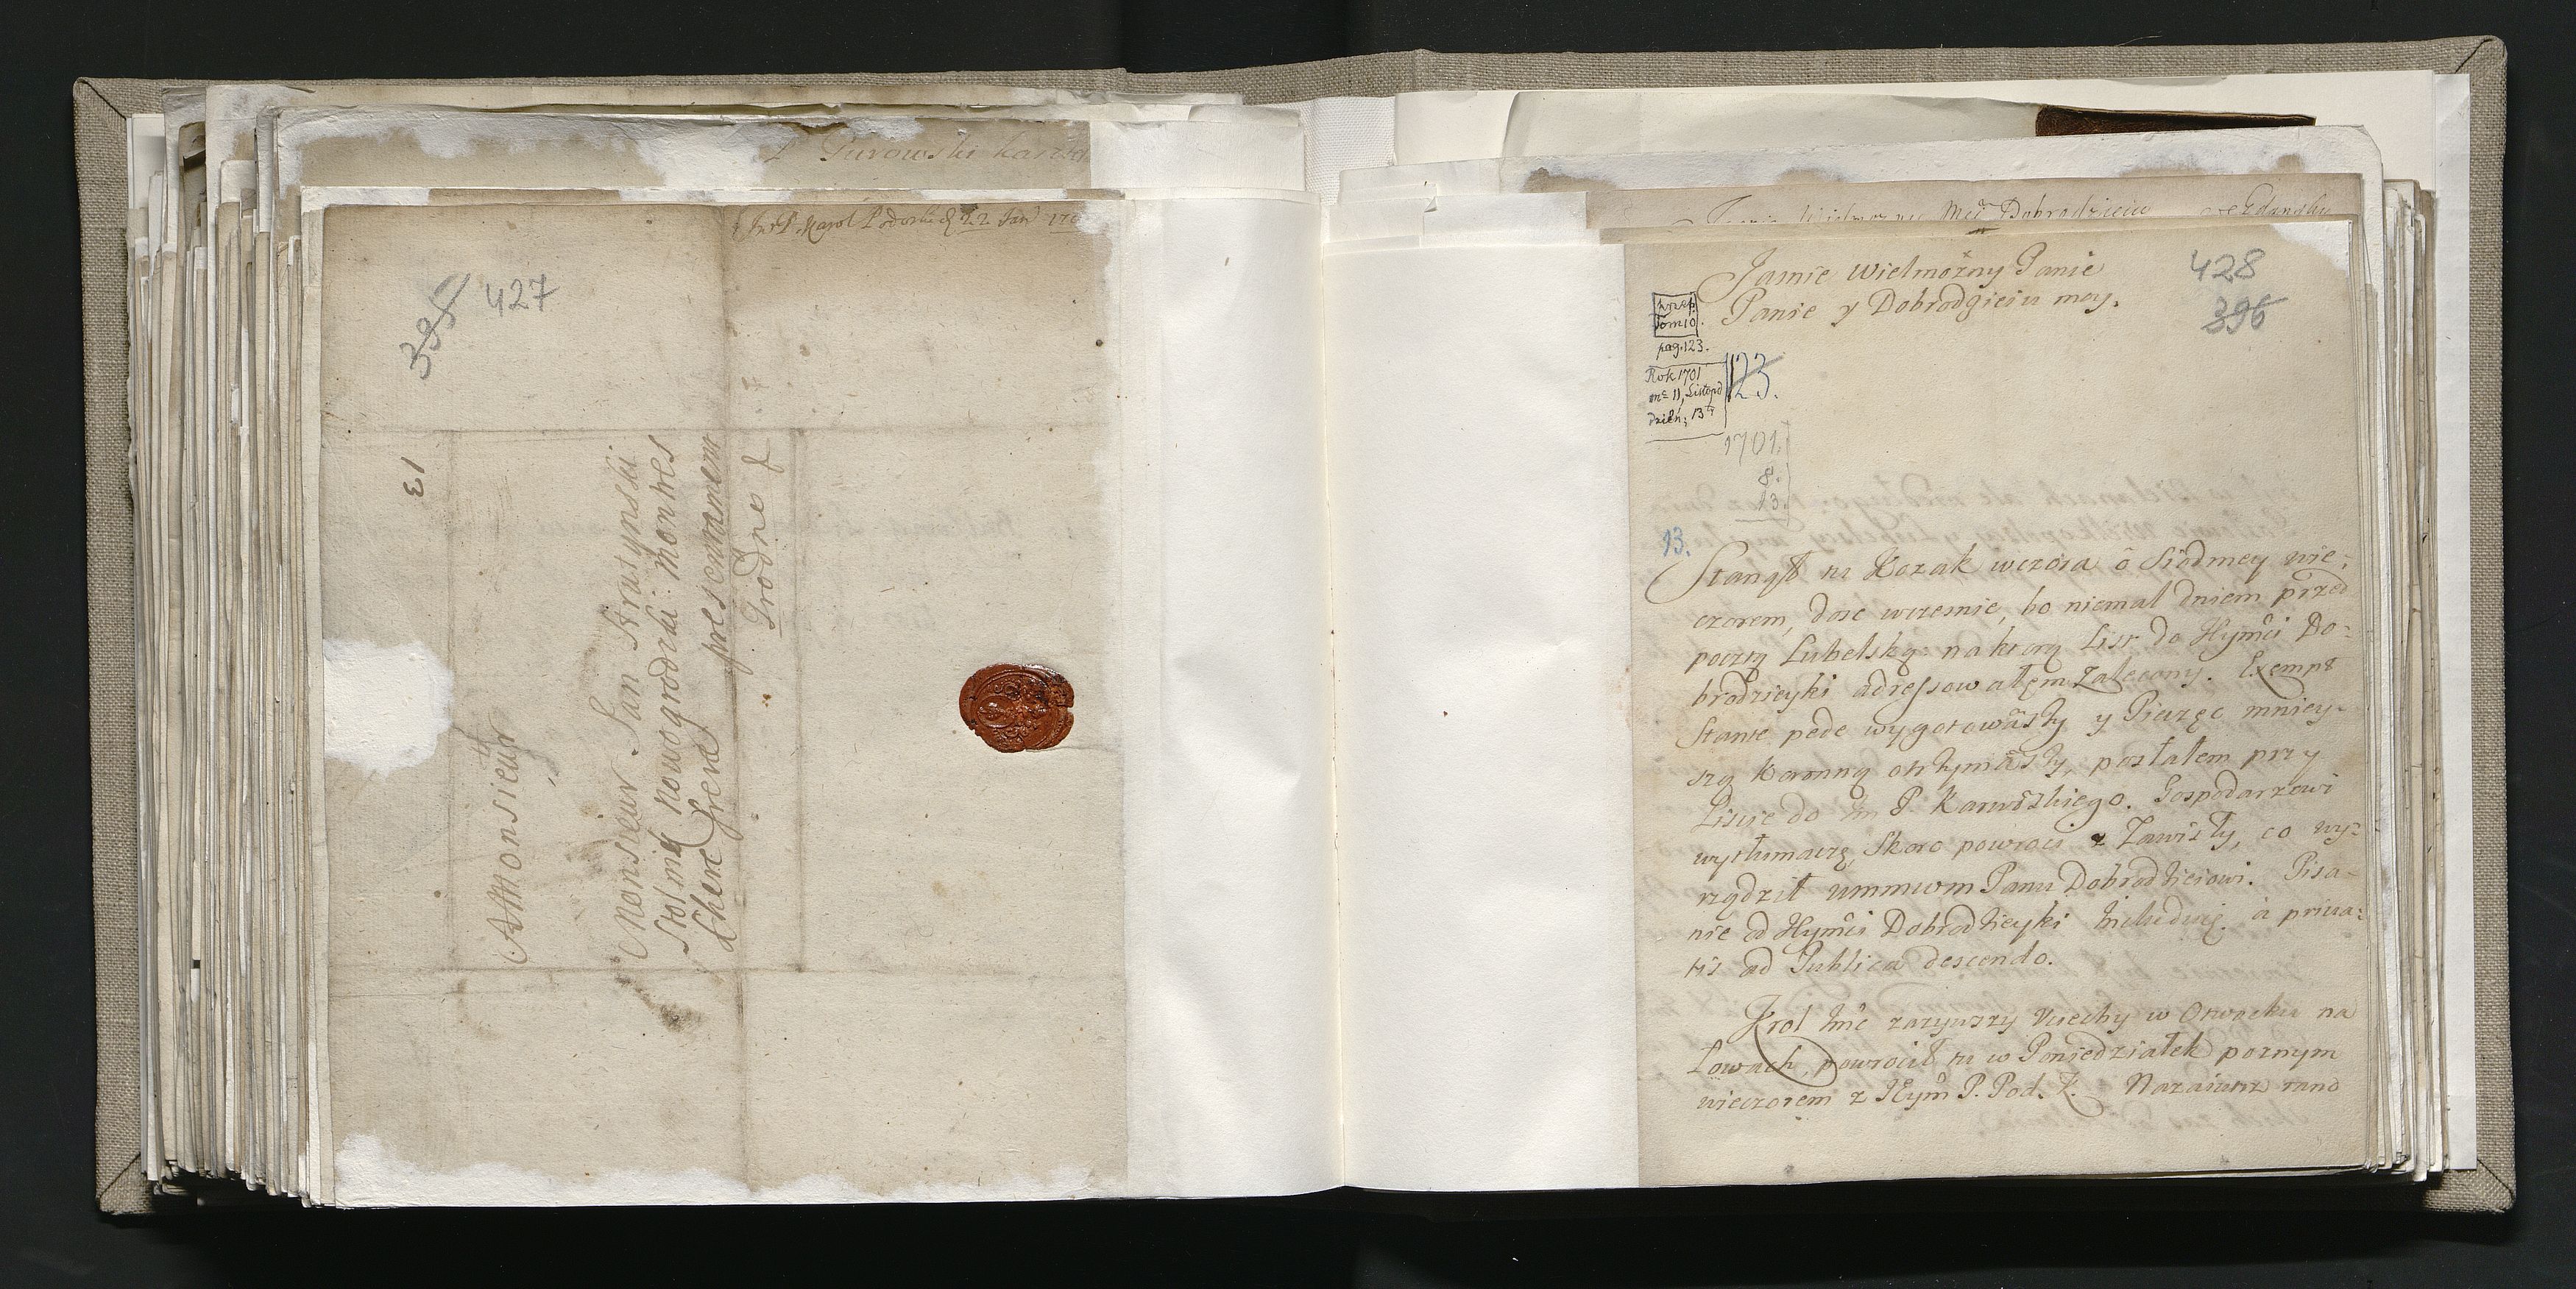 Purowski
Karol Podoski 22 Jan
395 427
13
A Monsieur
Monsieur Jan Stratynski
Stolnik nowogrodzki mon tres
Cher Frere presentement
Grodno
Dobrodzieiu
428
396
Jasnie Wielmożny Panie
Panie y Dobrodzieiu moy.
Tom 10.
pag. 123.
Rok 1701
mc 11, Listopd
dzień, 13
123.
1701.
8.
13.
13.
Stanął tu Kozak wczora o Siodmey wie-
czorem, dosc wczesnie, bo niemal dniem przed
pocztą Lubelską. na ktorą List do Jeymci Do-
brodzieyki adressowałem zalecony. Exempt
Stante pede wygotowawszy y Pieczęc mniey-
szą Koronną otrzymawszy, posłałem przy
Liscie do Im P. Karwowskiego. Gospodarzowi
wytłumaczę, Skoro powroci z Zawisły, co wy-
rządził Panu Dobrodzieiowi. Pisa-
nie od Jeymci Dobrodzieyki includuię. à priva-
tis ad Publica descendo.
Krol Imc zazywszy Uciechy w Otwocku na
Łowach, powrocił tu w Poniedziałek poznym
wieczorem z Jeym P. Pod. K. Nazaiutrz rano